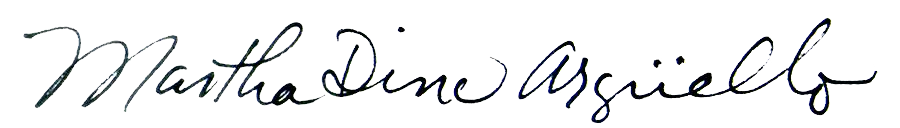 Martha Dina Argüello